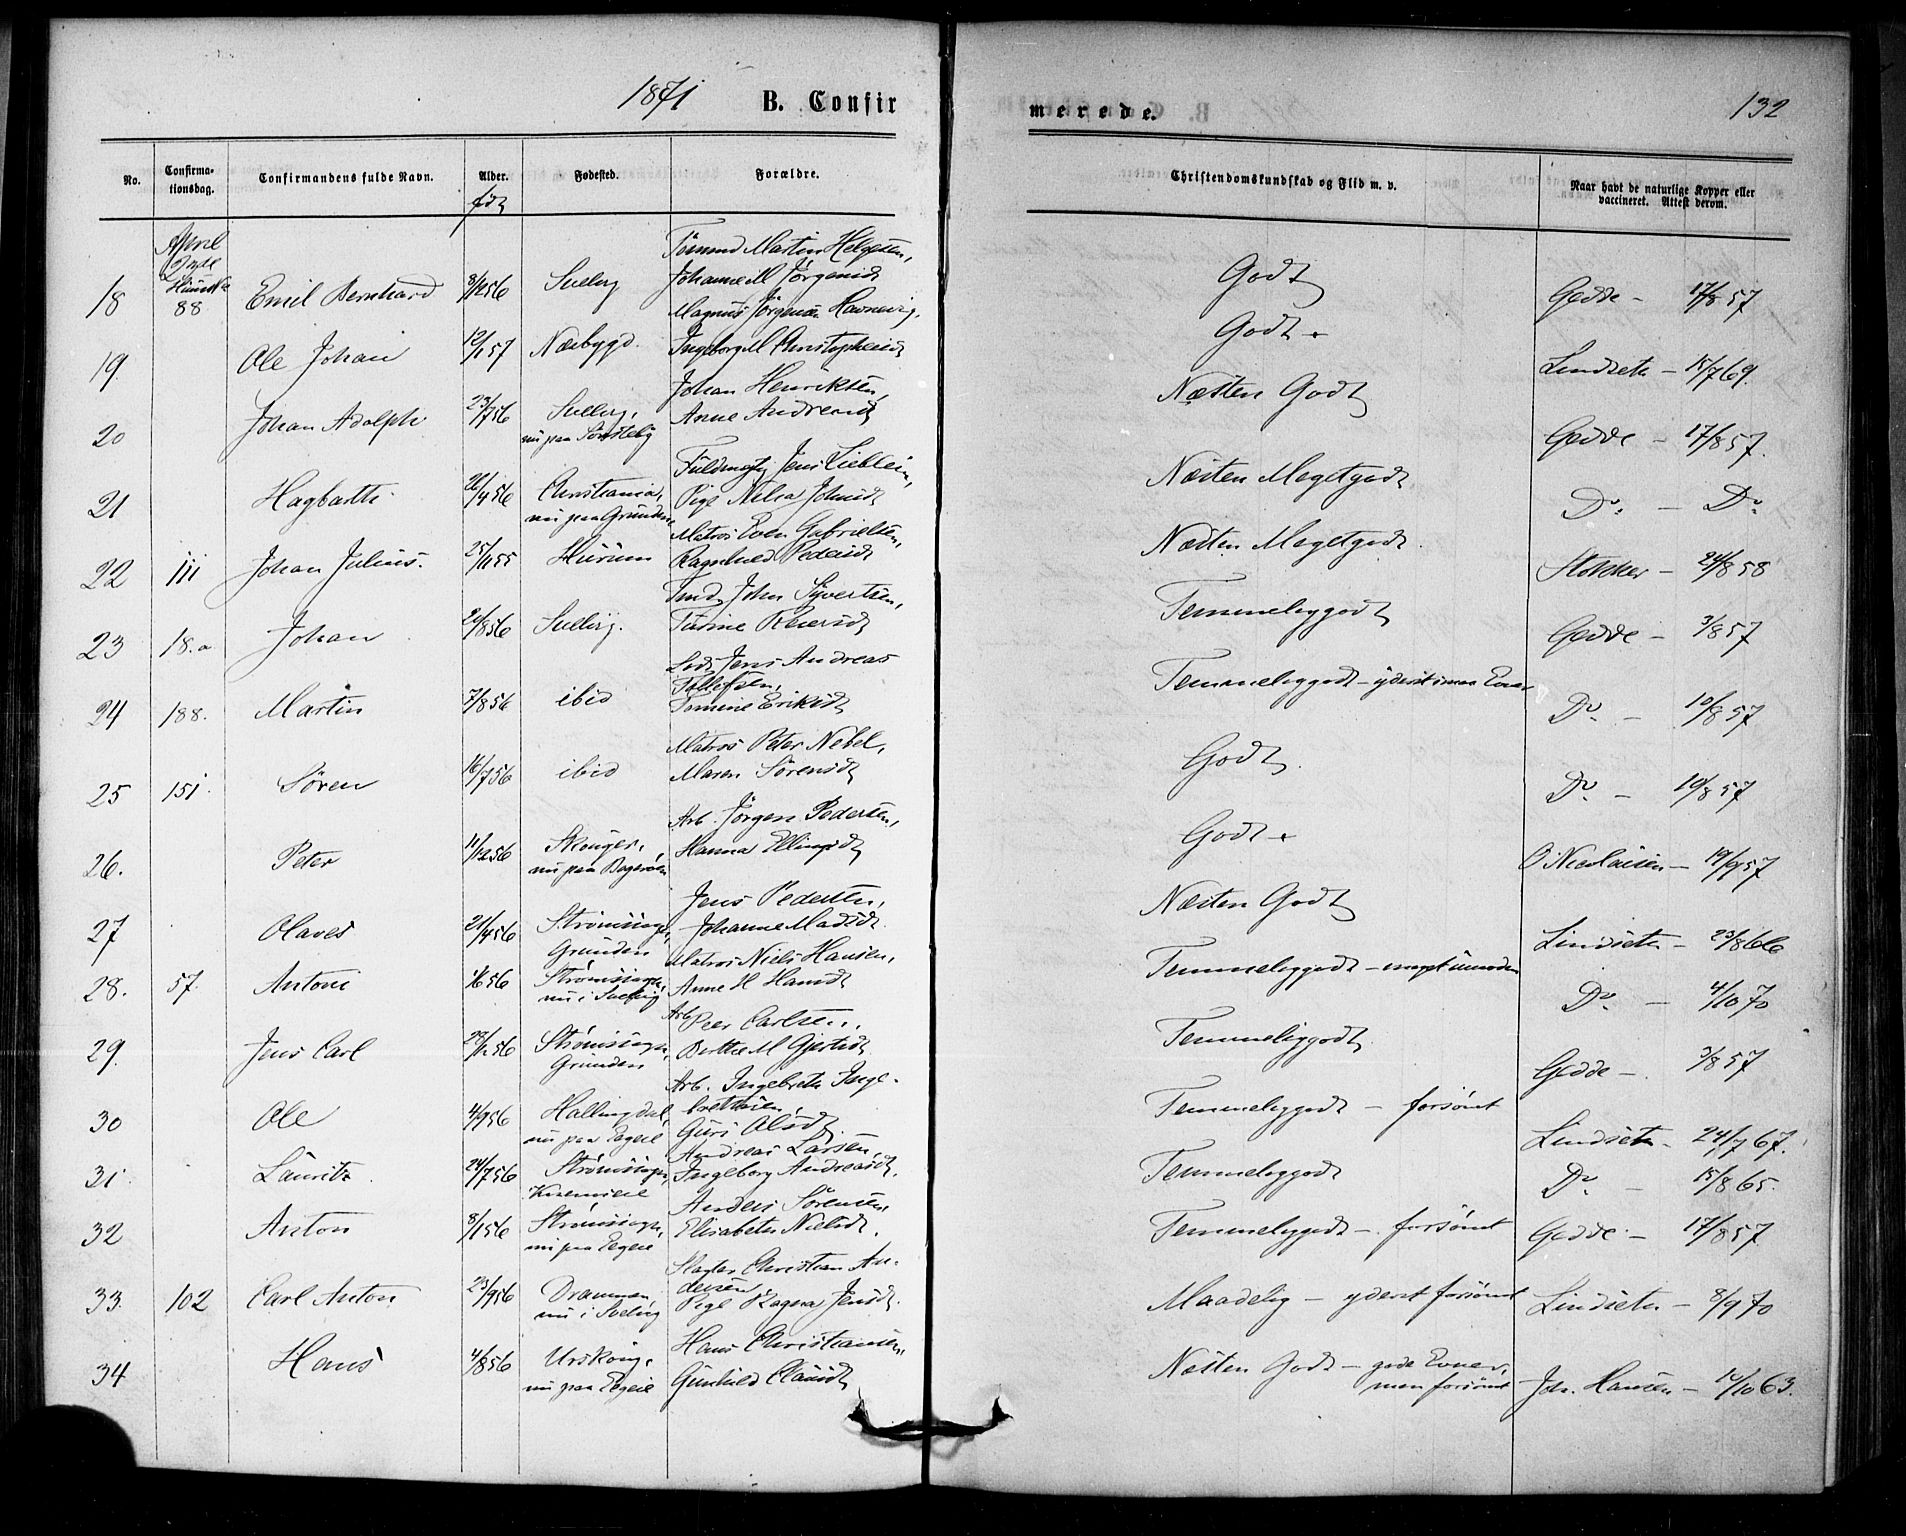 1871 B. Confir
merede. 132
No. Confirma-
tionsdag. Confirmandens fulde Navn. Alder. Fødested. Forældre. Christendomskundskab og Flid m. v. Naar havt de naturlige Kopper eller
vaccineret. Attest derom.
født
April
18 88 Emil Bernhard 8/12 56 Svelvig Martin Helgesen,
Johanne M Jörgensdt Godt Gedde - 17/8 57
19. Ole Johan 12/1 57 Nesbygd. Magnus Jörgensen Havnevig,
Ingeborg M Christophersdt Godt. Lindseth - 15/7 69.
20 Johan Adolph 23/7 56 Svelvig,
nu paa Sönsteby Johan Henriksen,
Anne Andreasdt Næsten Godt Gedde - 17/8 57.
21 Hagbarth 26/4 56 Christiania,
nu paa Grunden Fuldmægtig Jens Lieblein,
Pige Johnsdt Næsten Megetgodt Do. - Do.
22 111 Johan Julius. 25/11 55 Hurum Matros Even Gabrielsen,
Ragnhild Pedersdt Næsten Megetgodt. Stokker - 24/8 58
23 18.a Johan 26/8 56 Svelvig. John Syvertsen,
Temmeliggodt Gedde - 3/8 57
24 188. Martin 7/8 56 ibid Lods Jens Andreas
Tollefsen,
Eriksdt Temmeliggodt - yderst smaa Evner Do. - 10/8 57
25 151. Sören 16/7 56 ibid Matros Peter Nebel,
Maren Sörensdt Godt. Do. - 10/8 57
26. Peter 11/12 56 Skouger,
nu paa Arb. Jörgen Pedersen,
Hanna Ellingsdt Godt. O Nicolaisen - 19/9 57
27 Olaves 21/4 56 Strömsogn,
Grunden Jens Pedersen,
Johanne Madsdt. Næsten Godt Lindseth - 23/8 66
28. 57. Anton 56 Strømsogn,
nu i Svelvig Matros Niels Hansen,
Anne H Hansdt Temmeliggodt - Do. - 4/10 70
29. Jens Carl 56 Strömsogn,
Grunden Arb Peer Carlsen,
Berthe M Gjertsdt. Temmeliggodt. Gedde - 3/8 57
30 Ole 4/9 56 Hallingdal,
nu paa Eegeie Arb. Ingebreth Inge-
brethsen,
Guri Olsdt. Temmeliggodt - forsömt Lindseth - 24/7 67.
31. Lauritz. 24/7 56 Strömsogn,
Andreas Larsen,
Ingeborg Andreasdt. Temmeliggodt Do. - 15/8 65.
32 Anton 8/1 56 Strömsogn,
nu paa Eegeie Anders Sörensen,
Elisabeth Nielsdt. Temmeliggodt - forsömt Gedde - 17/8 57
33. 102 Carl Anton 23/9 56 Drammen
nu i Svelvig Slagter Christian An-
dersen
Pige Ragna Jensdt. Maadelig - yderst forsömt Lindseth - 8/9 70
34 Hans 4/8 56 Urskoug,
nu paa Eegeie Hans Christiansen,
Gunhild Clausdt Næsten Godt - gode Evner,
men forsömt Joh. Hansen - 10 63.